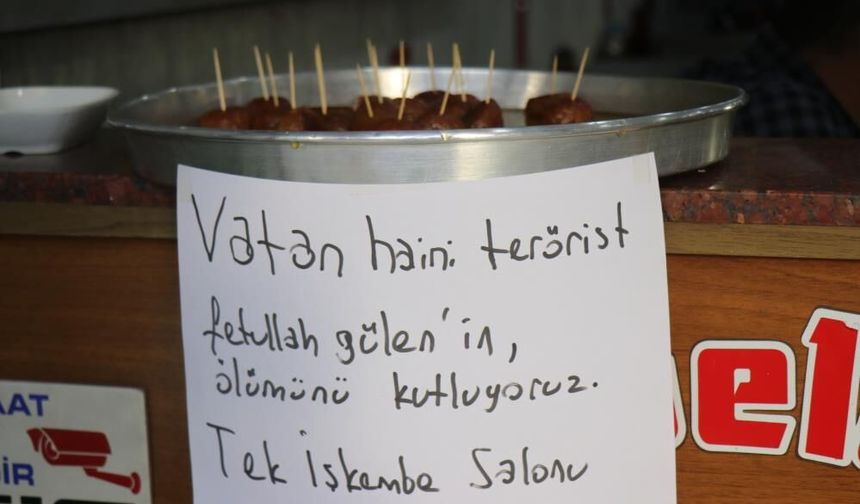 Vatan haini terörist
fetullah gülen'in,
ölümünü kutluyoruz.
Tek işkembe Salonu
AAT
İR
el